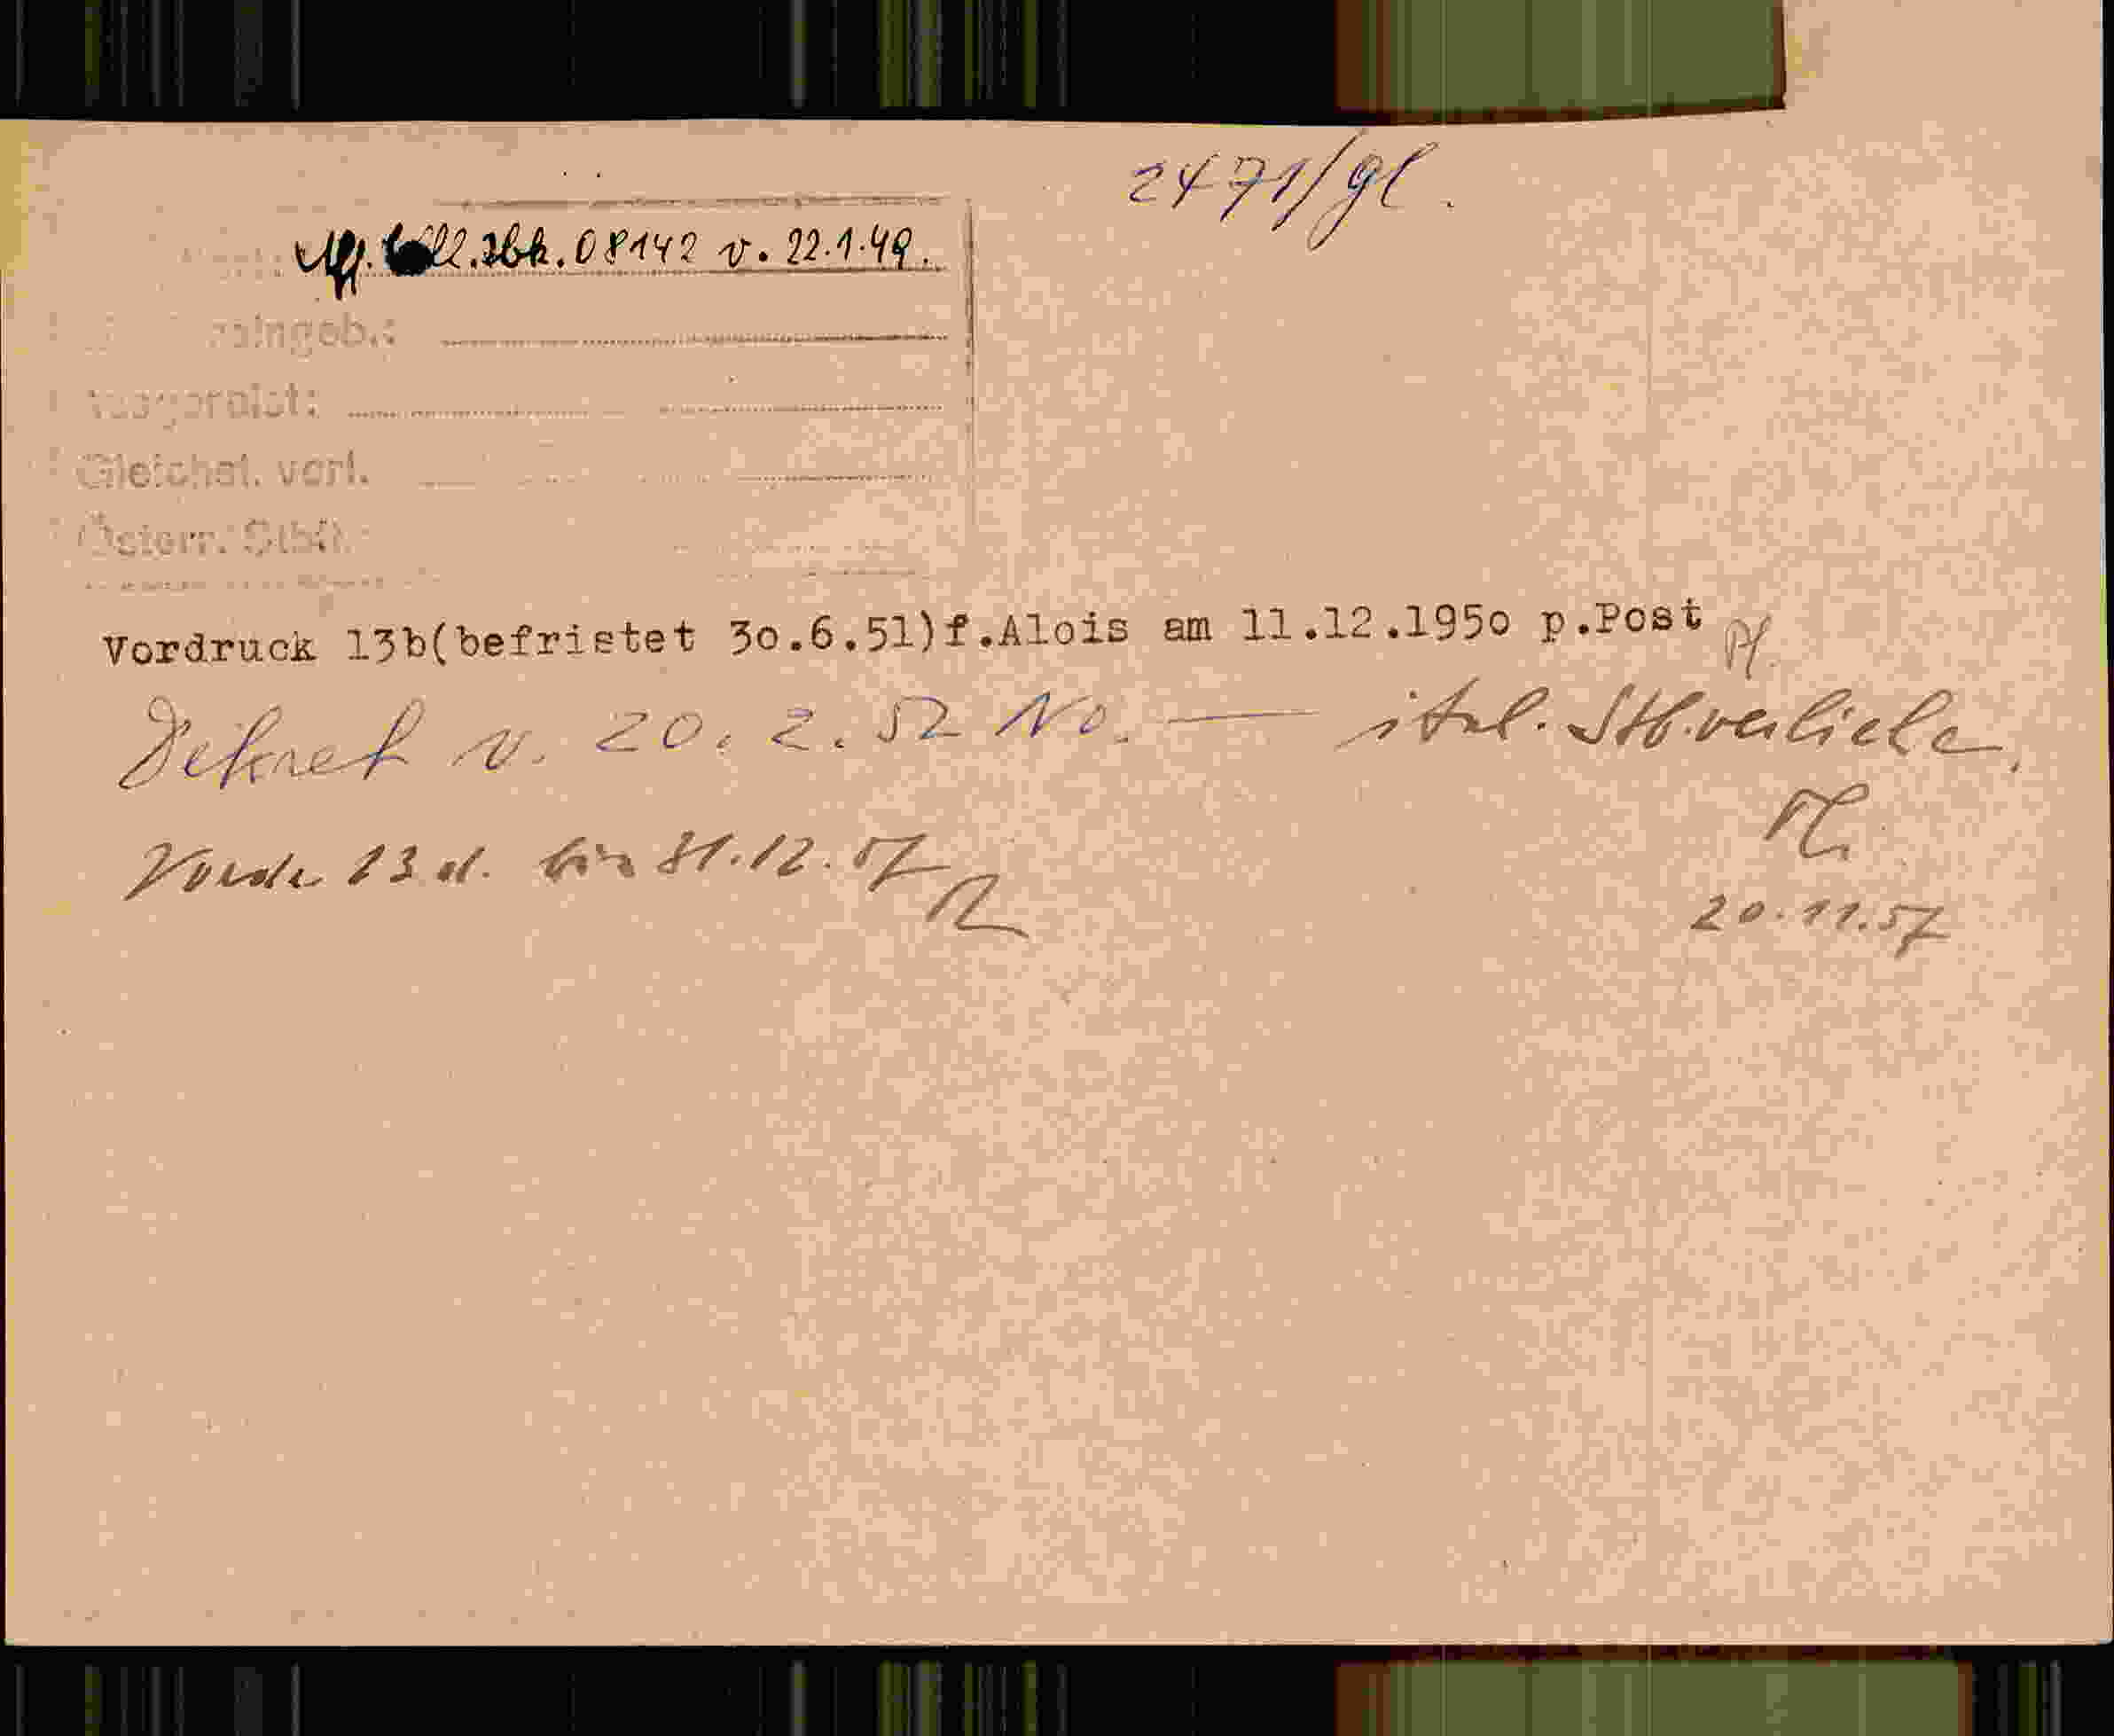 2471/gl.
08142 v. 22.1.49.
Gleichst. verl.
Österr. Stb.
Vordruck 13b(befristet 30.6.51)f.Alois am 11.12.1950 p.Post
Dekret v. 20.2.52 No. — ital. Stb. verliehen
13 d. bis 31.12.57
20.11.57